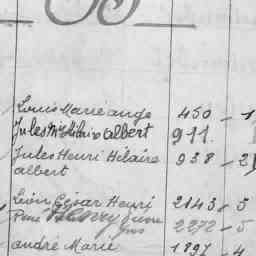 Louis Marie ange 450 - 1
Jules Mie Hilaire albert 911.
Jules Henri Hilaire 938 - 2
albert
Léon César Henri 2143 - 5
René 2272 - 5
andré Marie 1897 - 4